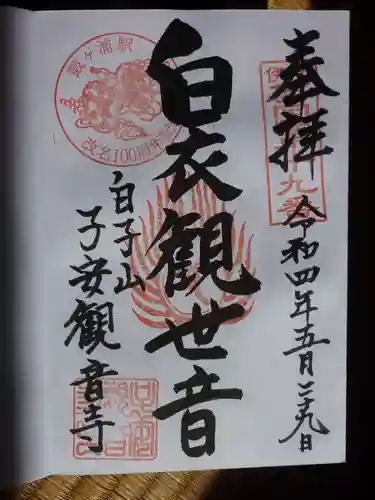 奉拝
令和四年五月二十九日
白衣観世音
白子山
子安観音寺
鼓ヶ浦駅
改名100周年記